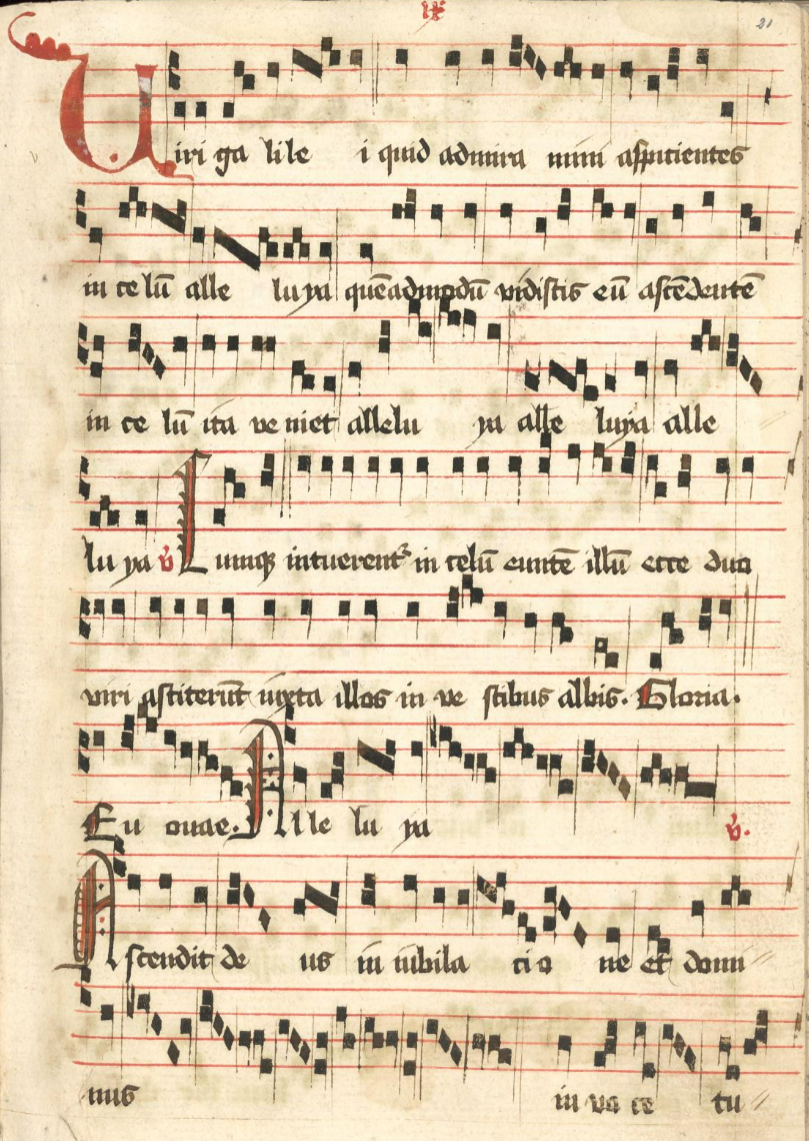 21
Uiri ga lile i quid admira mini aspicientes
in ce lū alle luya quēadmodū vidistis eū ascēdentē
in ce lū ita ve niet allelu ya alle luya alle
lu ya v̓ Cumq̨ intuerent᷒ in celū euntē illū ecce duo
viri astiterūt iuxta illos in ve stibus albis. Gloria.
Eu ouae. Alle lu ya v̓.
Ascendit de us in iubila cio ne et domi
nus in vo ce tu